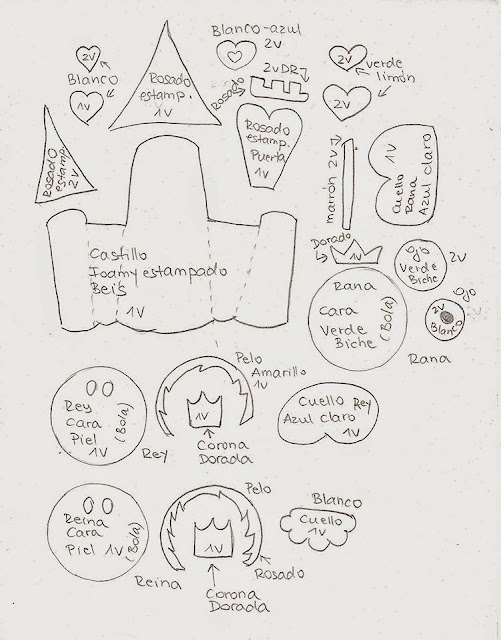 2V
Blanco
1V
Rosado
estamp.
1V
Blanco-azul
2V
2V
verde
limón
2V
Rosado
2vDR
Rosado
estamp.
2V
Rosado
estamp.
Puerta
1V
marrón 2V
1V
Cuello
Rana
Azul claro
Castillo
Foamy estampado
Beis
1V
Dorado
1V
Ojo
Verde
Biche
2V
Rana
Cara
Verde
Biche
(Bola)
ojo
2V
Blanco
Rana
Rey
Cara
Piel
1V
(Bola)
Pelo
Amarillo
1V
1V
Rey
Corona
Dorada
Cuello Rey
Azul claro
1V
Reina
Cara
Piel 1V
(Bola)
Pelo
1V
Rosado
Reina
Corona
Dorada
Blanco
Cuello
1V